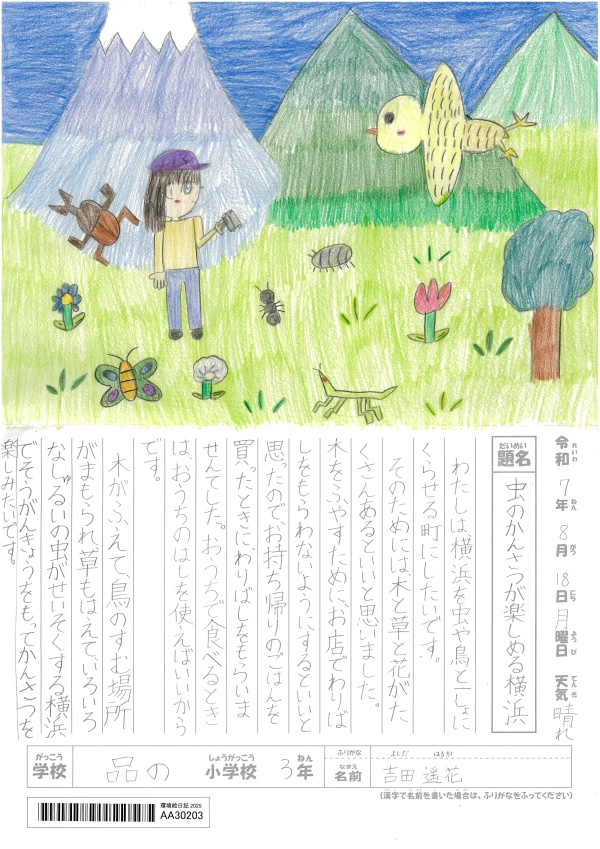 令和7年8月18日月曜日 天気 晴れ
れいわ ねん がつ にち ようび てんき
だいめい
題名 虫のかんさつが楽しめる横浜
わたしは横浜を虫や鳥と一しょに
くらせる町にしたいです。
そのためには、木と草と花がた
くさんあるといいと思いました。
木をふやすために、お店でわりば
しをもらわないようにするといいと
思ったのでお持ち帰りのごはんを
買ったときにわりばしをもらいま
せんでした。おうちで食べるとき
は、おうちのはしを使えばいいから
です。
木がふえて、鳥のすむ場所
がまもられ、草もはえていろいろ
なしゅるいの虫がせいそくする横浜
でそうがんきょうをもってかんさつを
楽しみたいです。
がっこう しょうがっこう ねん
学校 品の 小学校 3年
ふりがな よしだ はるか
なまえ
名前 吉田 遥花
(漢字で名前を書いた場合は、ふりがなをふってください)
環境絵日記 2025
AA30203